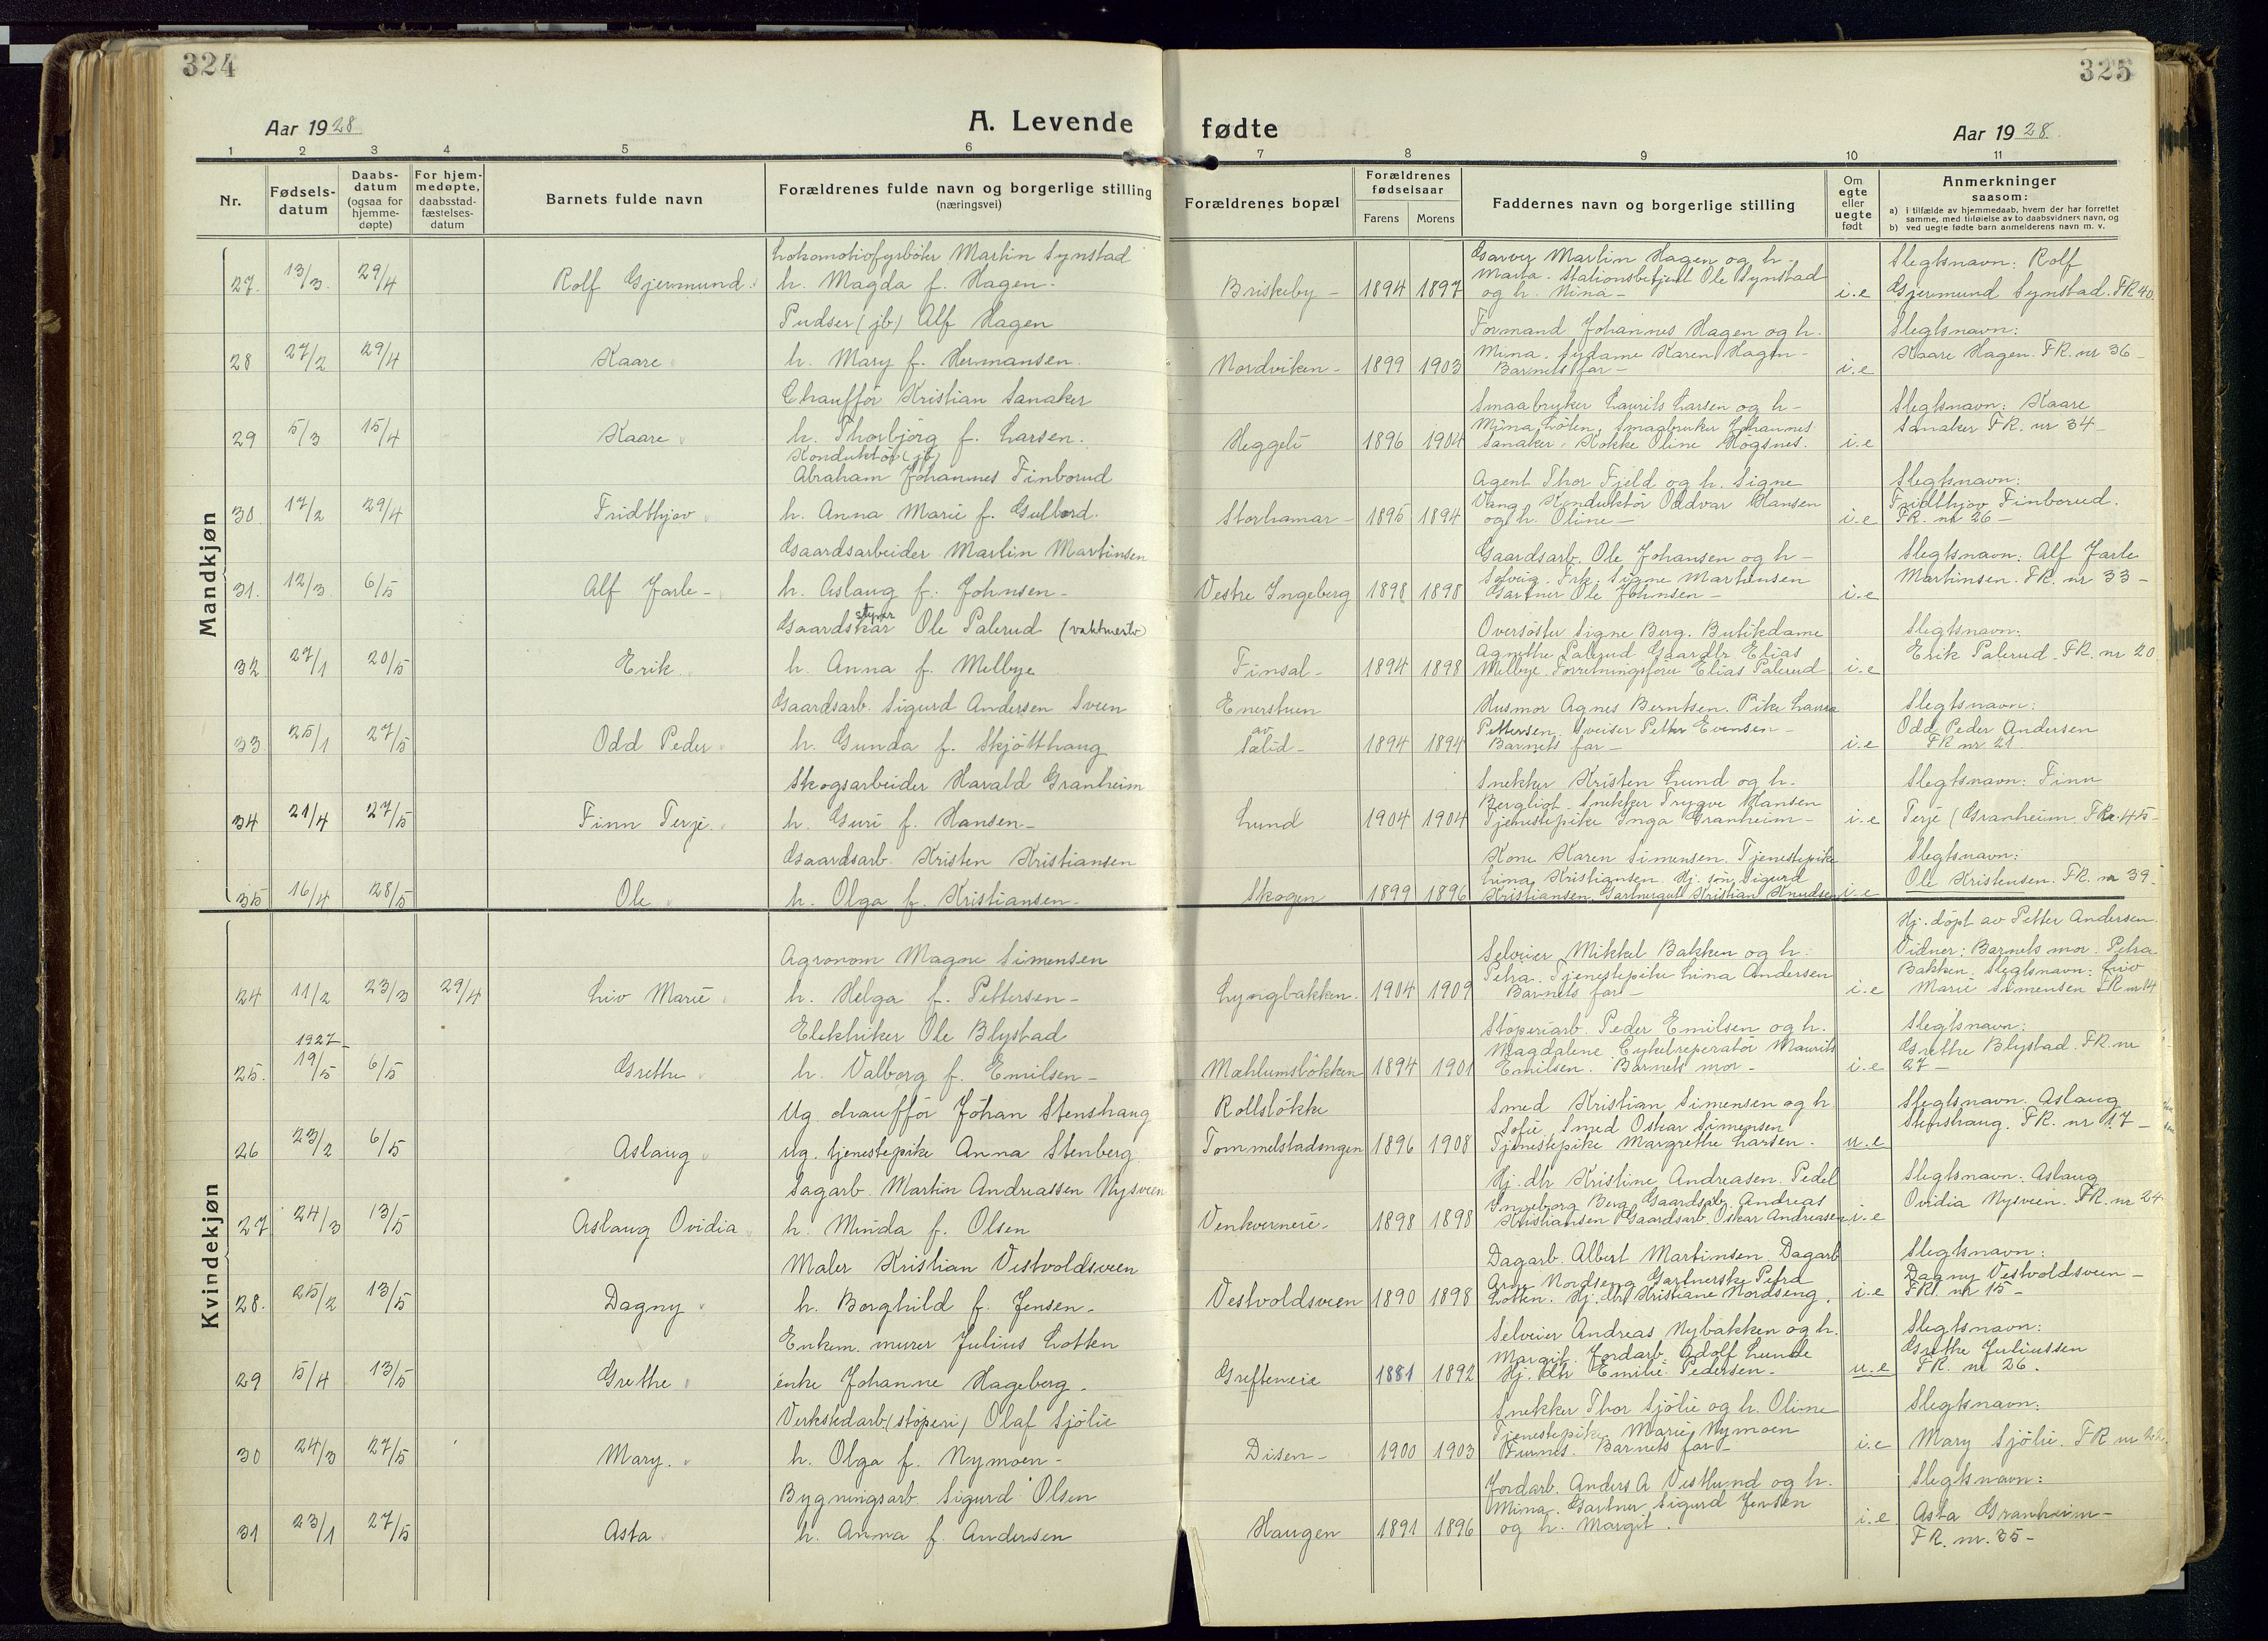 324
325
Aar 1928
A. Levende fødte
Aar 1928
1 2 3 4 5 6 7 8 9 10 11
Nr.
Fødsels-
datum
Daabs-
datum
(ogsaa for
hjemme-
døpte)
For hjem-
medøpte,
daabsstad-
fæstelses-
datum
Barnets fulde navn
Forældrenes fulde navn og borgerlige stilling
(næringsvei)
Forældrenes bopæl
Forældrenes
fødselsaar
Farens Morens
Faddernes navn og borgerlige stilling
Om
egte
eller
uegte
født
Anmerkninger
saasom:
a) i tilfælde av hjemmedaab, hvem der har forrettet
samme, med tilføielse av to daabsvidners navn, og
b) ved uegte fødte barn anmelderens navn m. v.
Mandkjøn
27. 13/3. 29/4 Rolf Gjermund.
Lokomotivfyrbøter Martin Synstad
h. Magda f. Hagen.
Briskeby - 1894 1897
Garver Martin Hagen og h.
Marta. Stationsbetjent Ole Synstad
og h. Nina -
i.e
Slegtsnavn: Rolf
Gjermund Synstad. FR 40
28 27/2 29/4 Kaare
Pudser (jb) Alf Hagen
h. Mary f. Hermansen.
Nordviken - 1899 1903
Formand Johannes Hagen og h.
Mina. Sydame Karen Hagen -
Barnets far -
i.e
Slegtsnavn:
Kaare Hagen. FR. nr 36 -
29 5/3 15/4 Kaare
Chauffør Kristian Sanaker
h. Thorbjørg f. Larsen.
Heggeli 1896 1904
Smaabruker Laurits Larsen og h -
Mina Løten, Smaabruker Johannes
Sanaker. Kokke Oline Høgsnes.
i.e
Slegtsnavn: Kaare
Sanaker FR. nr 34 -
30. 17/2 29/4 Fridthjov
Konduktør (jb)
Abraham Johannes Finborud
h. Anna Marie f. Gullord.
Storhamar - 1895 1894
Agent Thor Fjeld og h. Signe
Vang. Konduktør Oddvar Hansen
og h. Oline -
i.e
Slegtsnavn:
Fridthjov Finborud.
FR. nr 26 -
31. 12/3 6/5 Alf Jarle -
Gaardsarbeider Martin Martinsen
h. Aslaug f. Johnsen -
Vestre Ingeberg 1898 1898
Gaardsarb. Ole Johansen og h -
Solvig. Frk. Signe Marthinsen
Gartner Ole Johnsen -
i.e
Slegtsnavn: Alf Jarle
Martinsen. FR. nr 33 -
32 27/1 20/5 Erik
styrer
Gaardskar Ole Palerud (vaktmester)
h. Anna f. Melbye
Finsal - 1894 1898
Oversøster Signe Berg. Butikdame
Agnethe Palerud Gaardbr Elias
Melbye. Forretningsfører Elias Palerud
i.e
Slegtsnavn:
Erik Palerud. FR. nr 20
33 25/1 27/5 Odd Peder
Gaardsarb. Sigurd Andersen Sveen
h. Gunda f. Skjøtthaug
Enerstuen
av
Sælid - 1894 1894
Husmor Agnes Berntsen. Pike Laura
Pettersen. Sveiser Petter Evensen -
Barnets far -
i.e
Slegtsnavn:
Odd Peder Andersen
FR nr 21
34 21/4 27/5 Finn Terje.
Skogsarbeider Harald Granheim
h. Guri f. Hansen -
Lund 1904 1904
Snekker Kristen Lund og h.
Bergliot. Snekker Trygve Hansen
Tjenestepike Inga Granheim -
i.e
Slegtsnavn: Finn
Terje (Granheim. FR nr. 45 -
35 16/4 28/5 Ole
Gaardsarb. Kristen Kristiansen
h. Olga f. Kristiansen -
Skogen 1899 1896
Kone Karen Simensen. Tjenestepike
Lina Kristiansen. Hj. søn Sigurd
Kristiansen. Gartnergut Kristian Knudsen
i.e
Slegtsnavn:
Ole Kristensen. FR. nr 39
Kvindekjøn
24 11/2 23/3 29/4 Liv Marie
Agronom Magne Simensen
h. Helga f. Pettersen -
Lyngbakken. 1904 1909
Selveier Mikkel Bakken og h.
Petra. Tjenestepike Lina Andersen
Barnets far -
i.e
Hj. døpt av Petter Andersen.
Vidner: Barnets mor. Petra
Bakken. Slegtsnavn: Liv
Marie Simensen FR nr 14
1927
25. 19/5 6/5 Grethe
Elektriker Ole Blystad
h. Valborg f. Emilsen -
Mæhlumsløkken 1894 1901
Støperiarb. Peder Emilsen og h.
Magdalene. Cykelreperatør Maurits
Emilsen. Barnets mor -
i.e
Slegtsnavn:
Grethe Blystad. FR. nr
27 -
26 23/2 6/5 Aslaug
Ug. chauffør Johan Stenshaug
Ug. tjenestepike Anna Stenberg
Rollsløkke
Tommelstadengen 1896 1908
Smed Kristian Simensen og h
Sofie. Smed Oskar Simensen
Tjenestepike Margrethe Larsen.
u.e
Slegtsnavn. Aslaug
Stenshaug. FR. nr 17 -
27 24/3 13/5 Aslaug Ovidia
Sagarb. Martin Andreassen Nysveen
h. Minda f. Olsen
Venkverneie - 1898 1898
Hj. dtr Kristine Andreasen. Pedel
Ingeborg Berg. Gaardsarb. Andreas
Kristiansen Gaardsarb. Oskar Andreasen
i.e
Slegtsnavn: Aslaug
Ovidia Nysveen. FR. nr 24.
28. 25/2 13/5 Dagny
Maler Kristian Vestvoldsveen
h. Borghild f. Jensen -
Vestvoldsveen 1890 1898
Dagarb. Albert Martinsen. Dagarb
Arne Nordseng Gartnerske Petra
Lotten. Hj. dtr Kristiane Nordseng.
i.e
Slegtsnavn:
Dagny Vestvoldsveen -
FR. nr 15 -
29 5/4 13/5 Grethe
Enkem. murer Julius Lotten
enke Johanne Hageberg.
Grefteneie 1881 1892
Selveier Andreas Nybakken og h.
Margit. Jordarb. Adolf Lunde
Hj. dtr Emilie Pedersen -
u.e
Slegtsnavn:
Grethe Juliussen
FR. nr 26.
30 24/3 27/5 Mary.
Verkstedarb (støperi) Olaf Sjølie
h. Olga f. Nymoen -
Disen - 1900 1903
Snekker Thor Sjølie og h. Oline
Tjenestepike Marie Nymoen
Furnes. Barnets far -
i.e
Slegtsnavn:
Mary Sjølie. FR nr 22.
31 23/1 27/5 Asta
Bygningsarb. Sigurd Olsen
h. Anna f. Andersen
Haugen 1891 1896
Jordarb. Anders A Vestlund og h.
Mina. Gartner Sigurd Jensen
og h. Margit.
i.e
Slegtsnavn:
Asta Granheim -
FR. nr. 35 -